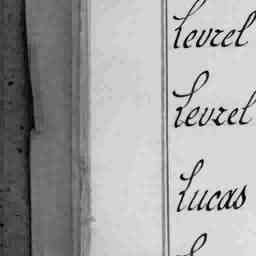 Levrel
Levrel
Lucas